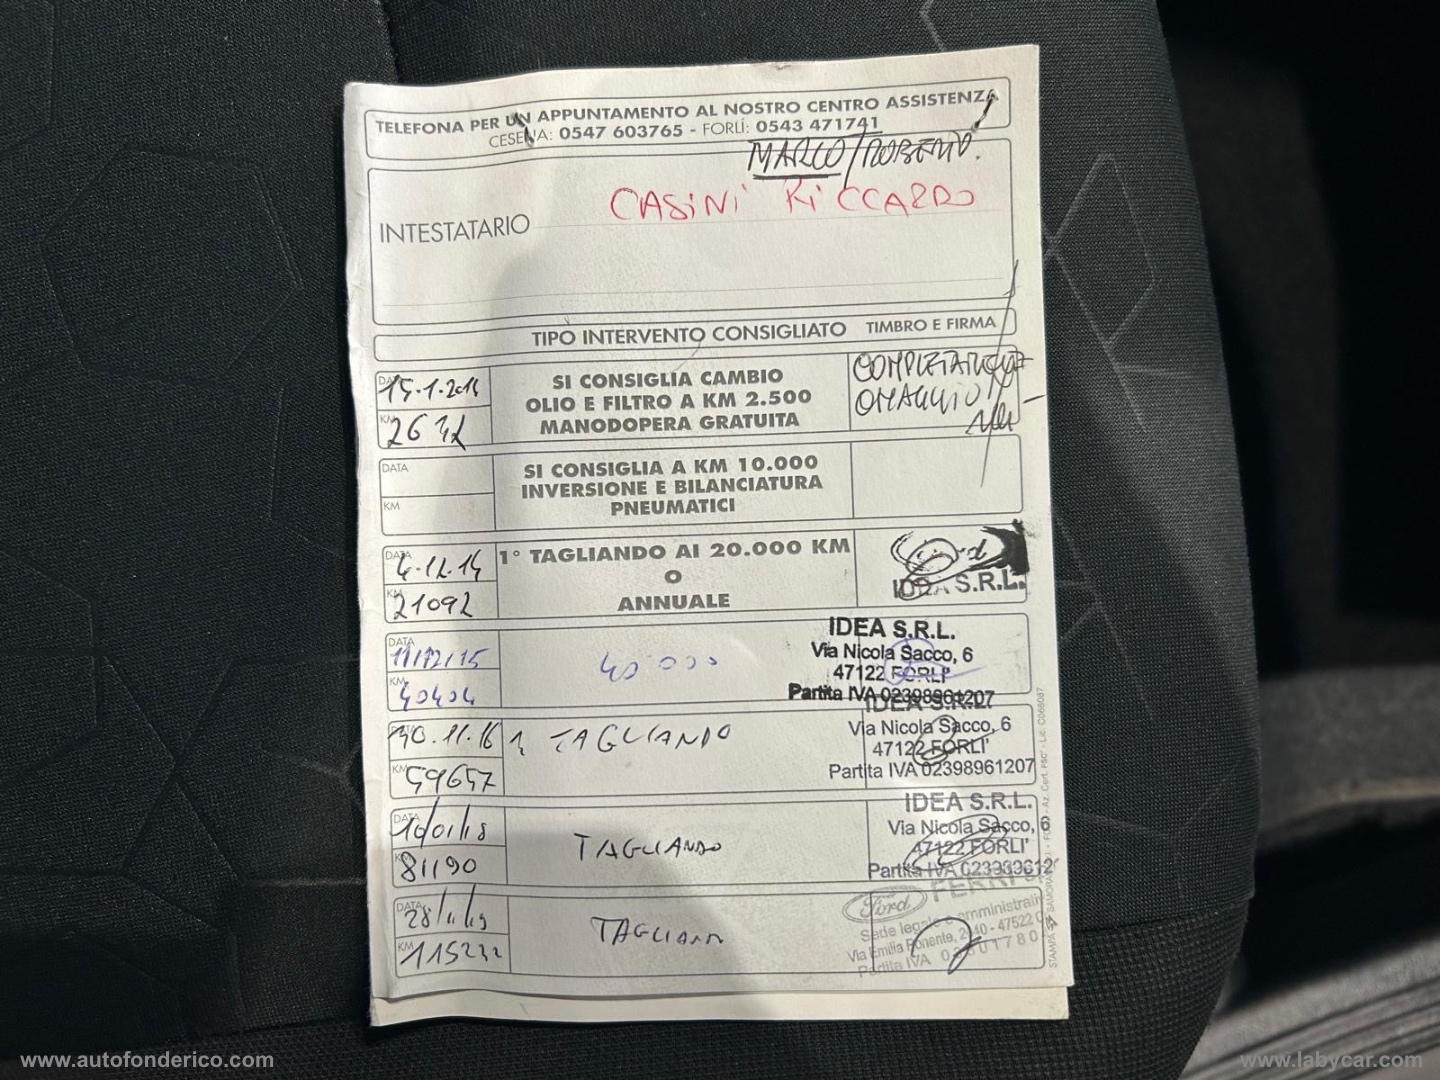 TELEFONA PER UN APPUNTAMENTO AL NOSTRO CENTRO ASSISTENZA
CESENA: 0547 603765 - FORLÌ: 0543 471741
MARCO/ROBERTO.
INTESTATARIO CASINI RICCARDO
TIPO INTERVENTO CONSIGLIATO TIMBRO E FIRMA
DATA 15.1.2014
KM
SI CONSIGLIA CAMBIO
OLIO E FILTRO A KM 2.500
MANODOPERA GRATUITA
OMAGGIO
DATA
KM
SI CONSIGLIA A KM 10.000
INVERSIONE E BILANCIATURA
PNEUMATICI
DATA 4.12.14
KM 21092
1° TAGLIANDO AI 20.000 KM
O
ANNUALE
IDEA S.R.L.
DATA 11/12/15
KM 40404
40000
IDEA S.R.L.
Via Nicola Sacco, 6
47122 FORLI'
Partita IVA 02398961207
DATA 30.11.16
KM 59657
TAGLIANDO
IDEA S.R.L.
Via Nicola Sacco, 6
47122 FORLI'
Partita IVA 02398961207
DATA 10/01/18
KM 81190
TAGLIANDO
IDEA S.R.L.
Via Nicola Sacco, 6
47122 FORLI'
Partita IVA 023989612
DATA 28/1/19
KM 115232
TAGLIANDO
Ford
Sede legale e amministrativa
Via Emilia Ponente, 2440 - 47522
Partita IVA
www.autofonderico.com
www.labycar.com